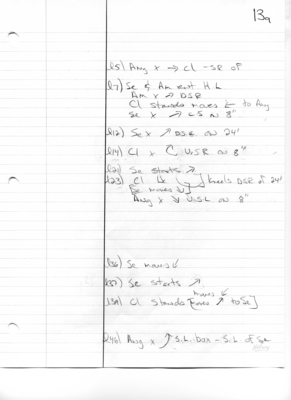 13a
l5) Ang x → cl - SR of
l7) Se & Am ext H.L.
Am x ↗ DSR
Cl stands moves ← to Ang
Se x ↗ CS on 8"
l12) Se x ↗ DSC on 24'
l14) Cl x USR on 8"
Se starts ↗
l23) Cl kneels DSR of 24'
Se moves ↘
Ang x ↘ USL on 8"
l36) Se moves ↙
Se starts ↗
moves ↙
Cl stands ↗ to Se
Ang x ↗ S.L. box - S.L. of